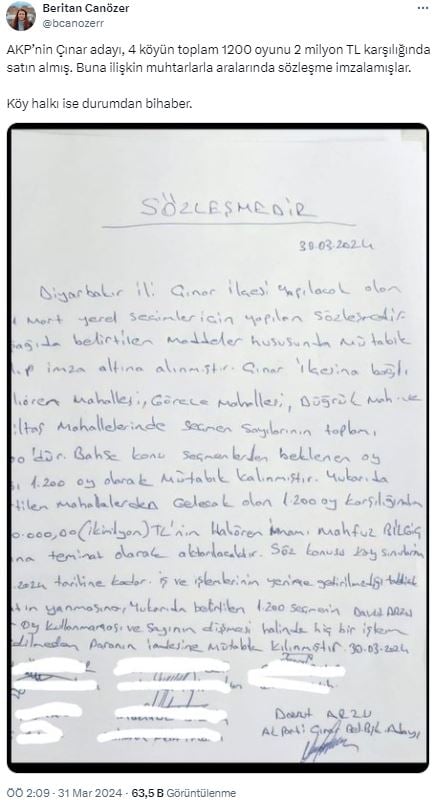 Beritan Canözer
@bcanozerr
AKP'nin Çınar adayı, 4 köyün toplam 1200 oyunu 2 milyon TL karşılığında
satın almış. Buna ilişkin muhtarlarla aralarında sözleşme imzalamışlar.
Köy halkı ise durumdan bihaber.
SÖZLEŞMEDİR
30.03.2024
Diyarbakır ili Çınar ilçesi Yapılacak olan
Mart yerel seçimler için yapılan Sözleşmedir.
ağıda belirtilen maddeler hususunda Mütabık
ıp imza altına alınmıştır. Çınar ilçesine bağlı
lören Mahallesi, Görece Mahallesi, Düğrük Mah. ve
ltaş Mahallelerinde seçmen Sayılarının toplamı
00'dür. Bahse konu seçmenlerden beklenen oy
1.200 oy olarak Mütabık kalınmıştır. Yukarıda
tilen mahallelerden Gelecek olan 1.200 oy karşılığında
0.000,00 (ikimilyon) TL'nin Halören imamı Mahfuz BİLGİÇ
na teminat olarak aktarılacaktır. Söz konusu
.2024 tarihine kadar. iş ve işlemlerinin yerine getirilmediği
yanmasına, Yukarıda belirtilen 1.200 seçmenin Davut ARZU
Oy kullanmaması ve Sayının düşmesi halinde hiç bir işlem
dilmeden Paranın iadesine Mütabık kılınmıştır. 30.03.2024
Davut ARZU
AK Parti Çınar Bel. Bşk. Adayı
ÖÖ 2:09 · 31 Mar 2024 · 63,5 B Görüntülenme